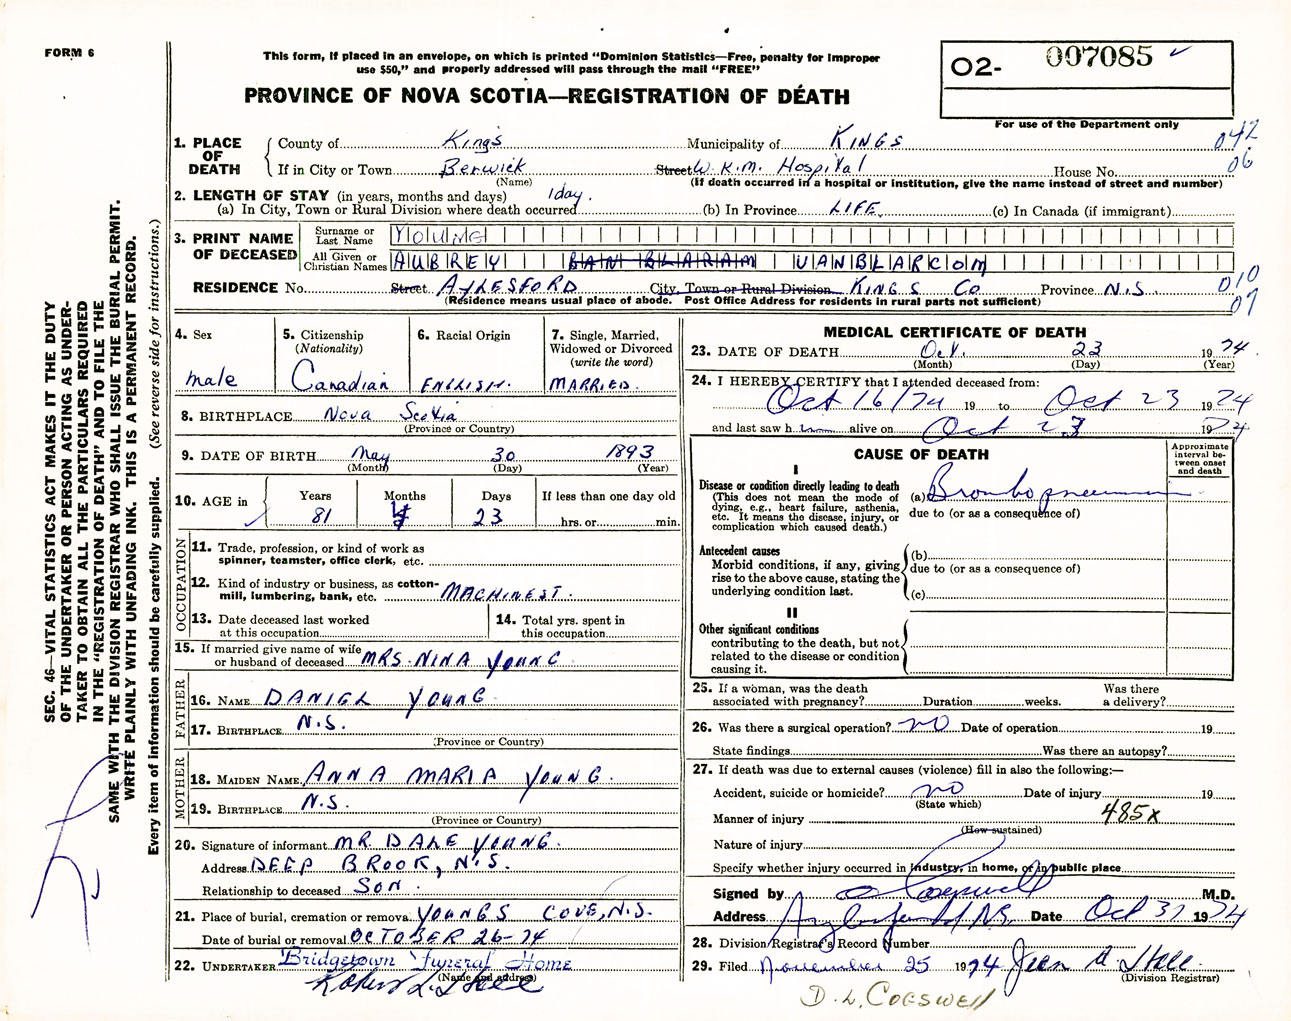 FORM 6
This form, if placed in an envelope, on which is printed "Dominion Statistics—Free, penalty for improper
use $50," and properly addressed will pass through the mail "FREE"
O2- 007085
PROVINCE OF NOVA SCOTIA—REGISTRATION OF DEATH
For use of the Department only
1. PLACE OF DEATH
County of Kings Municipality of KINGS 042
If in City or Town Berwick Street W.K.M. Hospital House No. 06
(Name) (If death occurred in a hospital or institution, give the name instead of street and number)
2. LENGTH OF STAY (in years, months and days) 1 day.
(a) In City, Town or Rural Division where death occurred (b) In Province LIFE. (c) In Canada (if immigrant)
3. PRINT NAME OF DECEASED
Surname or Last Name YOUNG
All Given or Christian Names AUBREY VANBLARCOM
RESIDENCE No. Street AYLESFORD City, Town or Rural Division KINGS Co Province N.S. 010
(Residence means usual place of abode. Post Office Address for residents in rural parts not sufficient) 07
4. Sex
male
5. Citizenship
(Nationality)
Canadian
6. Racial Origin
ENGLISH.
7. Single, Married,
Widowed or Divorced
(write the word)
MARRIED.
8. BIRTHPLACE Nova Scotia
(Province or Country)
9. DATE OF BIRTH May 30 1893
(Month) (Day) (Year)
10. AGE in
Years Months Days If less than one day old
81 4 23 hrs. or min.
OCCUPATION
11. Trade, profession, or kind of work as
spinner, teamster, office clerk, etc.
12. Kind of industry or business, as cotton-
mill, lumbering, bank, etc. MACHINEST.
13. Date deceased last worked
at this occupation
14. Total yrs. spent in
this occupation
15. If married give name of wife
or husband of deceased MRS. NINA YOUNG
FATHER
16. NAME DANIEL YOUNG
17. BIRTHPLACE N.S.
(Province or Country)
MOTHER
18. MAIDEN NAME ANNA MARIA YOUNG.
19. BIRTHPLACE N.S.
(Province or Country)
20. Signature of informant MR. DALE YOUNG.
Address DEEP BROOK, N.S.
Relationship to deceased SON.
21. Place of burial, cremation or removal YOUNGS COVE, N.S.
Date of burial or removal OCTOBER 26-74
22. UNDERTAKER Bridgetown Funeral Home
(Name and address)
MEDICAL CERTIFICATE OF DEATH
23. DATE OF DEATH Oct. 23 1974
(Month) (Day) (Year)
24. I HEREBY CERTIFY that I attended deceased from:
Oct 16/74 19 to Oct 23 1974
and last saw h im alive on Oct 23 1974
CAUSE OF DEATH
Approximate interval between onset and death
I
Disease or condition directly leading to death
(This does not mean the mode of dying, e.g., heart failure, asthenia, etc. It means the disease, injury, or complication which caused death.)
(a) Bronchopneumonia
due to (or as a consequence of)
Antecedent causes
Morbid conditions, if any, giving rise to the above cause, stating the underlying condition last.
(b)
due to (or as a consequence of)
(c)
II
Other significant conditions
contributing to the death, but not related to the disease or condition causing it.
25. If a woman, was the death
associated with pregnancy? Duration weeks. Was there a delivery?
26. Was there a surgical operation? no Date of operation 19
State findings Was there an autopsy?
27. If death was due to external causes (violence) fill in also the following:—
Accident, suicide or homicide? no Date of injury 19
(State which)
Manner of injury 485x
(How sustained)
Nature of injury
Specify whether injury occurred in industry, in home, or in public place
Signed by Cogswell M.D.
Address N.S. Date Oct 31 1974
28. Division Registrar's Record Number
29. Filed November 25 1974
(Division Registrar)
D. L. COGSWELL
SEC. 46—VITAL STATISTICS ACT MAKES IT THE DUTY
OF THE UNDERTAKER OR PERSON ACTING AS UNDER-
TAKER TO OBTAIN ALL THE PARTICULARS REQUIRED
IN THE "REGISTRATION OF DEATH" AND TO FILE THE
SAME WITH THE DIVISION REGISTRAR WHO SHALL ISSUE THE BURIAL PERMIT.
WRITE PLAINLY WITH UNFADING INK. THIS IS A PERMANENT RECORD.
Every item of information should be carefully supplied. (See reverse side for instructions.)